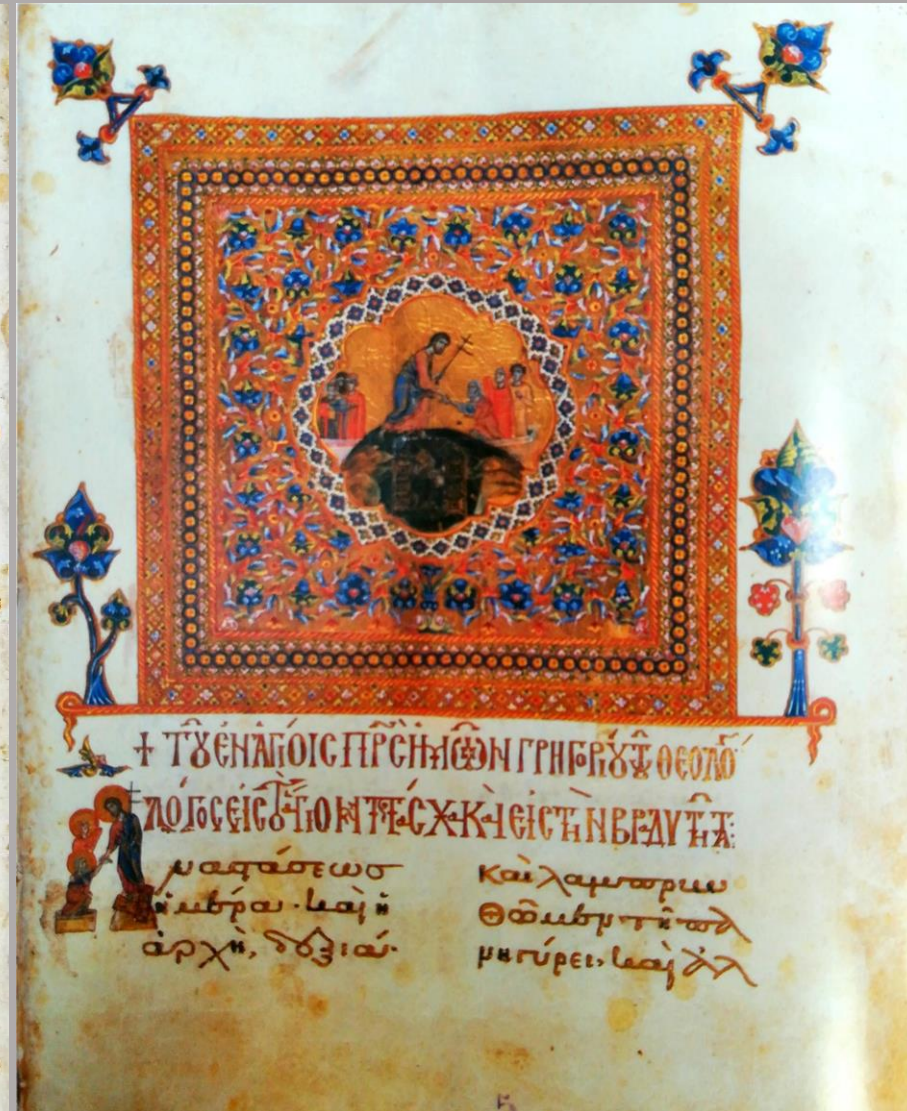 + ΤȢ ΕΝ ΑΓΙΟΙC ΠΡC ΗΜΩΝ ΓΡΗΓΟΡΙȢ ΤȢ ΘΕΟΛΟ
ΛΟΓΟC ΕΙC ΤΟ ΑΓΙΟΝ ΠΑCΧΑ Κ ΕΙC ΤΗΝ ΒΡΑΔΥΤΗΤΑ:
Ἀναστάσεωσ
ἡμέρα· καὶ ἡ
ἀρχὴ, δεξιά·
καὶ λαμπρυν
θῶμεν τῆ πα
νηγύρει, καὶ ἀλ